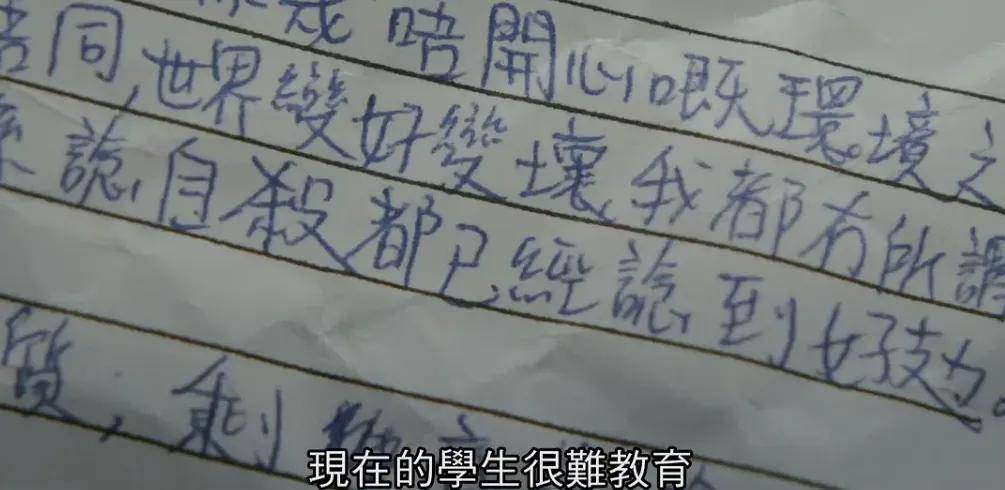 唔開心嘅環境之
同,世界變好變壞,我都冇所謂
諗,自殺都已經諗到好攰。
質,剩
現在的學生很難教育